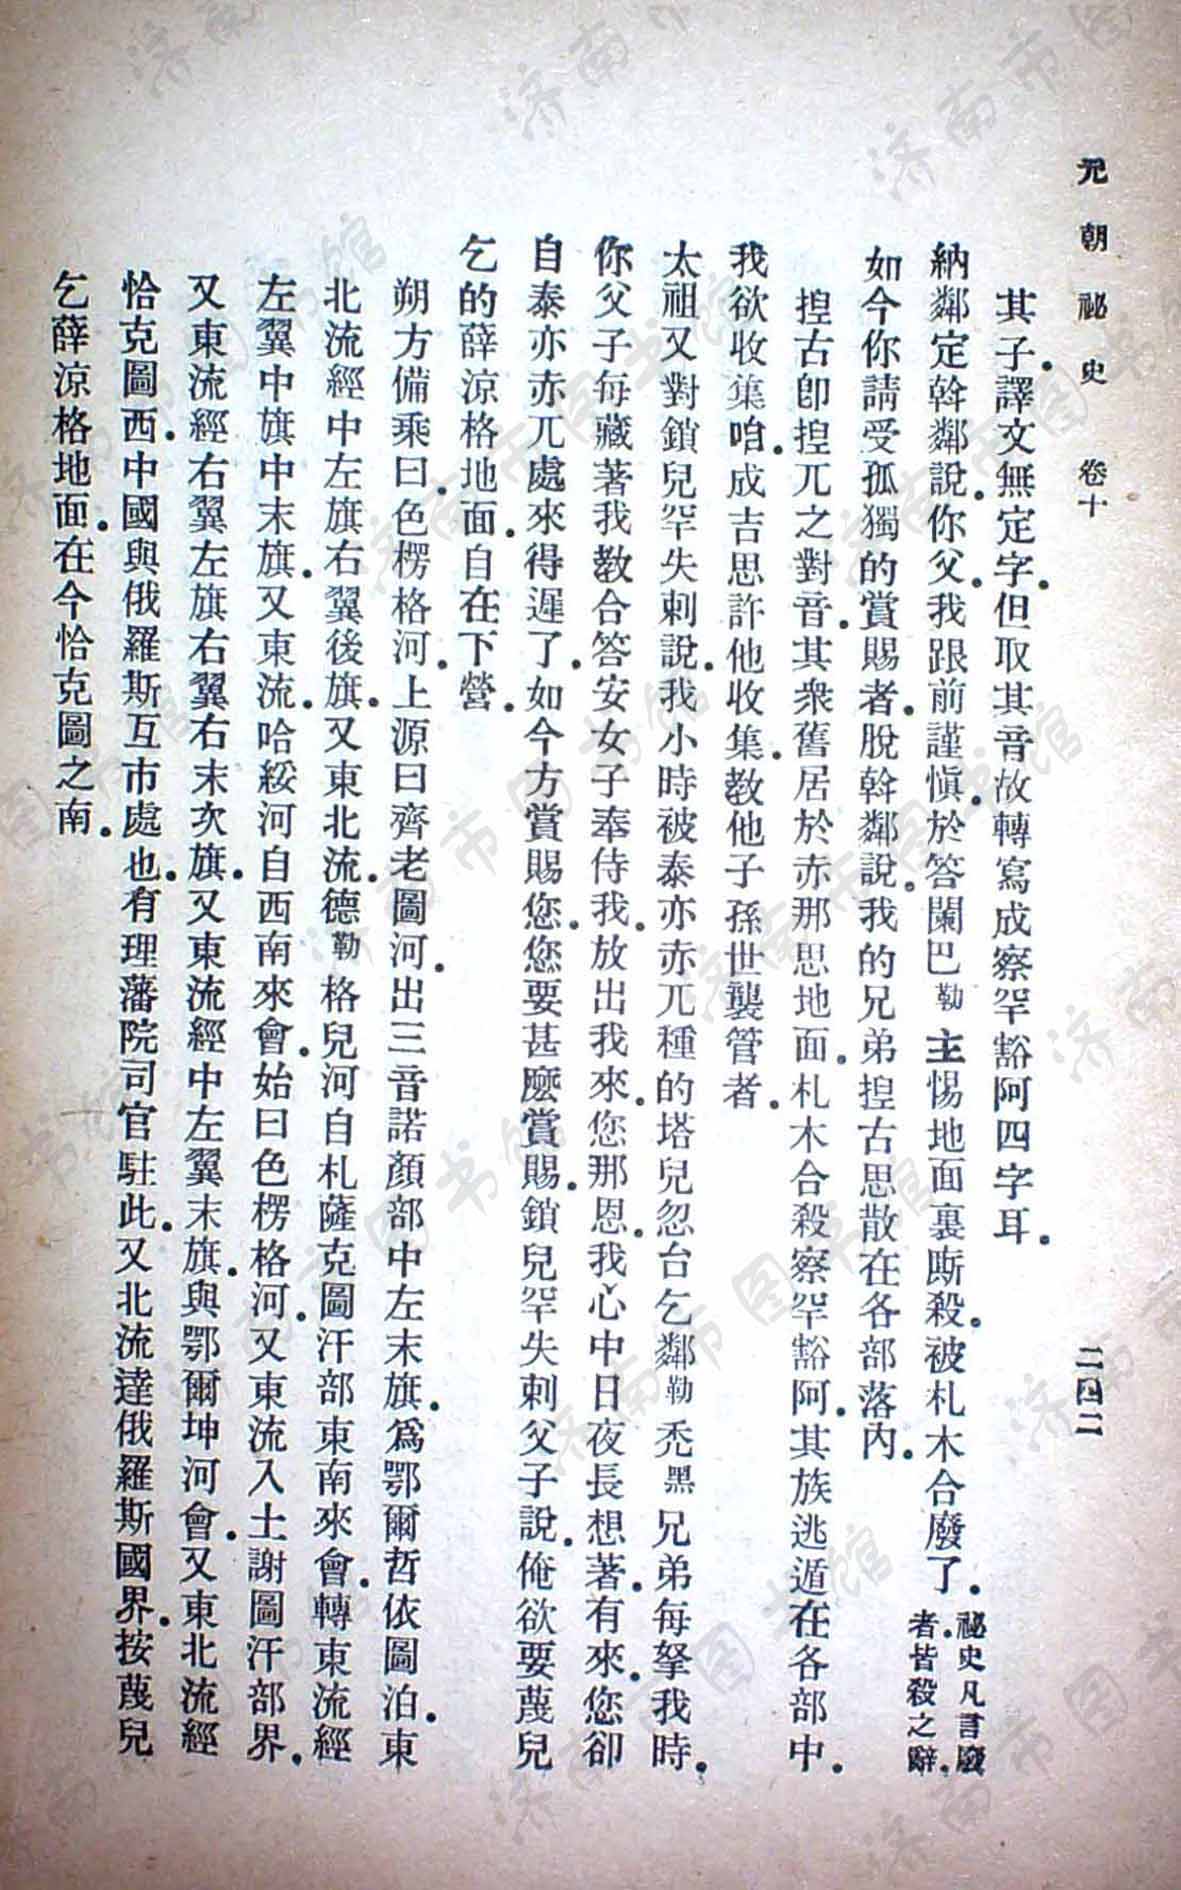 元朝祕史 卷十 二四二
其子。譯文無定字。但取其音。故轉寫成察罕豁阿四字耳。
納鄰定斡鄰說。你父。我跟前謹愼。於答闌巴勒主惕地面裏廝殺。被札木合廢了。祕史凡言廢者。皆殺之辭。
如今你請受孤獨的賞賜者。脫斡鄰說。我的兄弟揑古思散在各部落內。
揑古卽揑兀之對音。其衆舊居於赤那思地面。札木合殺察罕豁阿。其族逃遁在各部中。
我欲收集咱。成吉思許他收集。敎他子孫世襲管者。
太祖又對鎖兒罕失剌說。我小時被泰亦赤兀種的塔兒忽台乞鄰勒禿黑兄弟每拏我時。
你父子每藏著我。敎合答安女子奉侍我。放出我來。您那恩。我心中日夜長想著。有來。您卻
自泰亦赤兀處來得遲了。如今方賞賜您。您要甚麼賞賜。鎖兒罕失剌父子說。俺欲要薎兒
乞的薛涼格地面。自在下營。
朔方備乘曰。色楞格河。上源曰齊老圖河。出三音諾顏部中左末旗。爲鄂爾哲依圖泊。東
北流經中左旗右翼後旗。又東北流。德勒格兒河自札薩克圖汗部東南來會。轉東流經
左翼中旗中末旗。又東流。哈綏河自西南來會。始曰色楞格河。又東流入土謝圖汗部界。
又東流經右翼左旗右翼右末次旗。又東流經中左翼末旗。與鄂爾坤河會。又東北流經
恰克圖西。中國與俄羅斯互市處也。有理藩院司官駐此。又北流達俄羅斯國界。按薎兒
乞薛涼格地面。在今恰克圖之南。
济南市图书馆